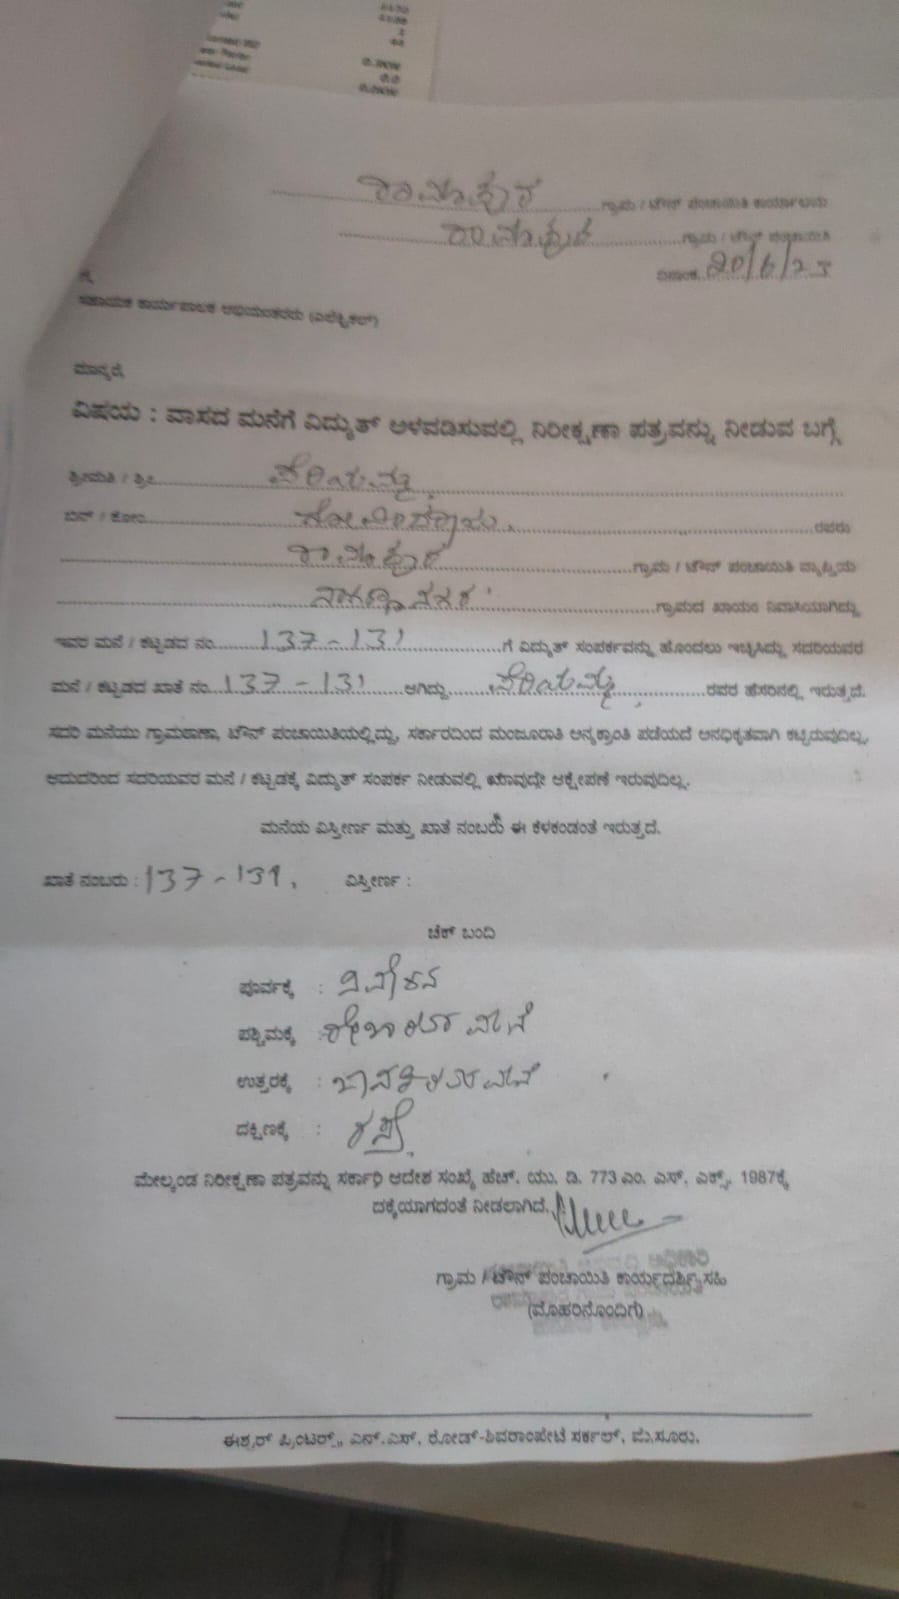 ರಾಮಾಪುರ ಗ್ರಾಮ / ಟೌನ್ ಪಂಚಾಯಿತಿ ಕಾರ್ಯಾಲಯ
ರಾಮಾಪುರ ಗ್ರಾಮ / ಟೌನ್ ಪಂಚಾಯಿತಿ
ದಿನಾಂಕ 20/6/23
ಗೆ,
ಸಹಾಯಕ ಕಾರ್ಯಪಾಲಕ ಅಭಿಯಂತರರು (ಎಲೆಕ್ಟ್ರಿಕಲ್)
ಮಾನ್ಯರೆ,
ವಿಷಯ : ವಾಸದ ಮನೆಗೆ ವಿದ್ಯುತ್ ಅಳವಡಿಸುವಲ್ಲಿ ನಿರೀಕ್ಷಣಾ ಪತ್ರವನ್ನು ನೀಡುವ ಬಗ್ಗೆ
ಶ್ರೀಮತಿ / ಶ್ರೀ ಪೆರಿಯಮ್ಮ
ಬಿನ್ / ಕೋಂ ಗೋವಿಂದರಾಯ. ರವರು
ರಾಮಾಪುರ ಗ್ರಾಮ / ಟೌನ್ ಪಂಚಾಯಿತಿ ವ್ಯಾಪ್ತಿಯ
ಗ್ರಾಮದ ಖಾಯಂ ನಿವಾಸಿಯಾಗಿದ್ದು
ಇವರ ಮನೆ / ಕಟ್ಟಡದ ನಂ. 137-131 ಗೆ ವಿದ್ಯುತ್ ಸಂಪರ್ಕವನ್ನು ಹೊಂದಲು ಇಚ್ಛಿಸಿದ್ದು ಸದರಿಯವರ
ಮನೆ / ಕಟ್ಟಡದ ಖಾತೆ ನಂ. 137-131 ಆಗಿದ್ದು ಪೆರಿಯಮ್ಮ ರವರ ಹೆಸರಿನಲ್ಲಿ ಇರುತ್ತದೆ.
ಸದರಿ ಮನೆಯು ಗ್ರಾಮಠಾಣಾ, ಟೌನ್ ಪಂಚಾಯಿತಿಯಲ್ಲಿದ್ದು, ಸರ್ಕಾರದಿಂದ ಮಂಜೂರಾತಿ ಅನ್ಯಕ್ರಾಂತಿ ಪಡೆಯದೆ ಅನಧಿಕೃತವಾಗಿ ಕಟ್ಟಿರುವುದಿಲ್ಲ,
ಆದುದರಿಂದ ಸದರಿಯವರ ಮನೆ / ಕಟ್ಟಡಕ್ಕೆ ವಿದ್ಯುತ್ ಸಂಪರ್ಕ ನೀಡುವಲ್ಲಿ ಯಾವುದೇ ಆಕ್ಷೇಪಣೆ ಇರುವುದಿಲ್ಲ.
ಮನೆಯ ವಿಸ್ತೀರ್ಣ ಮತ್ತು ಖಾತೆ ನಂಬರು ಈ ಕೆಳಕಂಡಂತೆ ಇರುತ್ತದೆ.
ಖಾತೆ ನಂಬರು : 137-131, ವಿಸ್ತೀರ್ಣ :
ಚೆಕ್ ಬಂದಿ
ಪೂರ್ವಕ್ಕೆ : ನಿವೇಶನ
ಪಶ್ಚಿಮಕ್ಕೆ : ಮನೆ
ಉತ್ತರಕ್ಕೆ : ಮನೆ
ದಕ್ಷಿಣಕ್ಕೆ : ರಸ್ತೆ.
ಮೇಲ್ಕಂಡ ನಿರೀಕ್ಷಣಾ ಪತ್ರವನ್ನು ಸರ್ಕಾರಿ ಆದೇಶ ಸಂಖ್ಯೆ ಹೆಚ್. ಯು. ಡಿ. 773 ಎಂ. ಎಸ್. ಎಕ್ಸ್. 1987ಕ್ಕೆ
ದಕ್ಕೆಯಾಗದಂತೆ ನೀಡಲಾಗಿದೆ.
ಗ್ರಾಮ / ಟೌನ್ ಪಂಚಾಯಿತಿ ಕಾರ್ಯದರ್ಶಿ ಸಹಿ
(ಮೊಹರಿನೊಂದಿಗೆ)
ಈಶ್ವರ್ ಪ್ರಿಂಟರ್ಸ್, ಎನ್.ಎಸ್. ರೋಡ್-ಶಿವರಾಂಪೇಟೆ ಸರ್ಕಲ್, ಮೈಸೂರು.